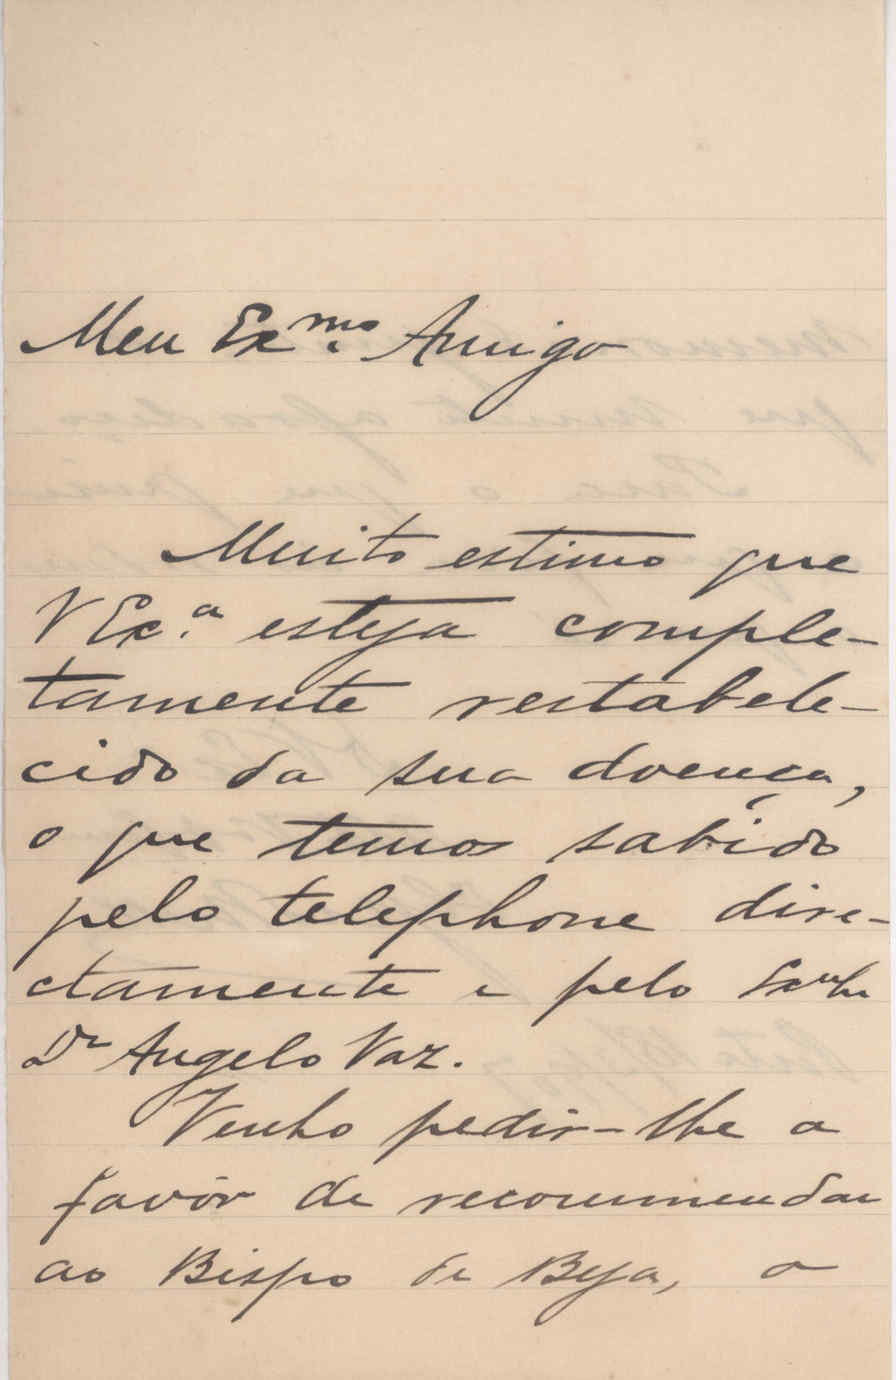 Meu Exmo. Amigo
Muito estimo que
V Ex.a esteja comple-
tamente restabele-
cido da sua doença,
o que temos sabido
pelo telephone dire-
ctamente e pelo
Dr Angelo Vaz.
Venho pedir-lhe o
favôr de recommendar
ao Bispo de Beja, o